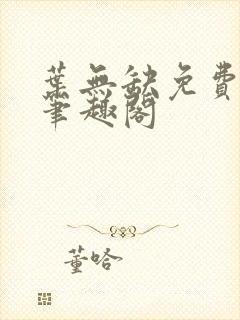 葉無缺免費
筆趣閣
董哈